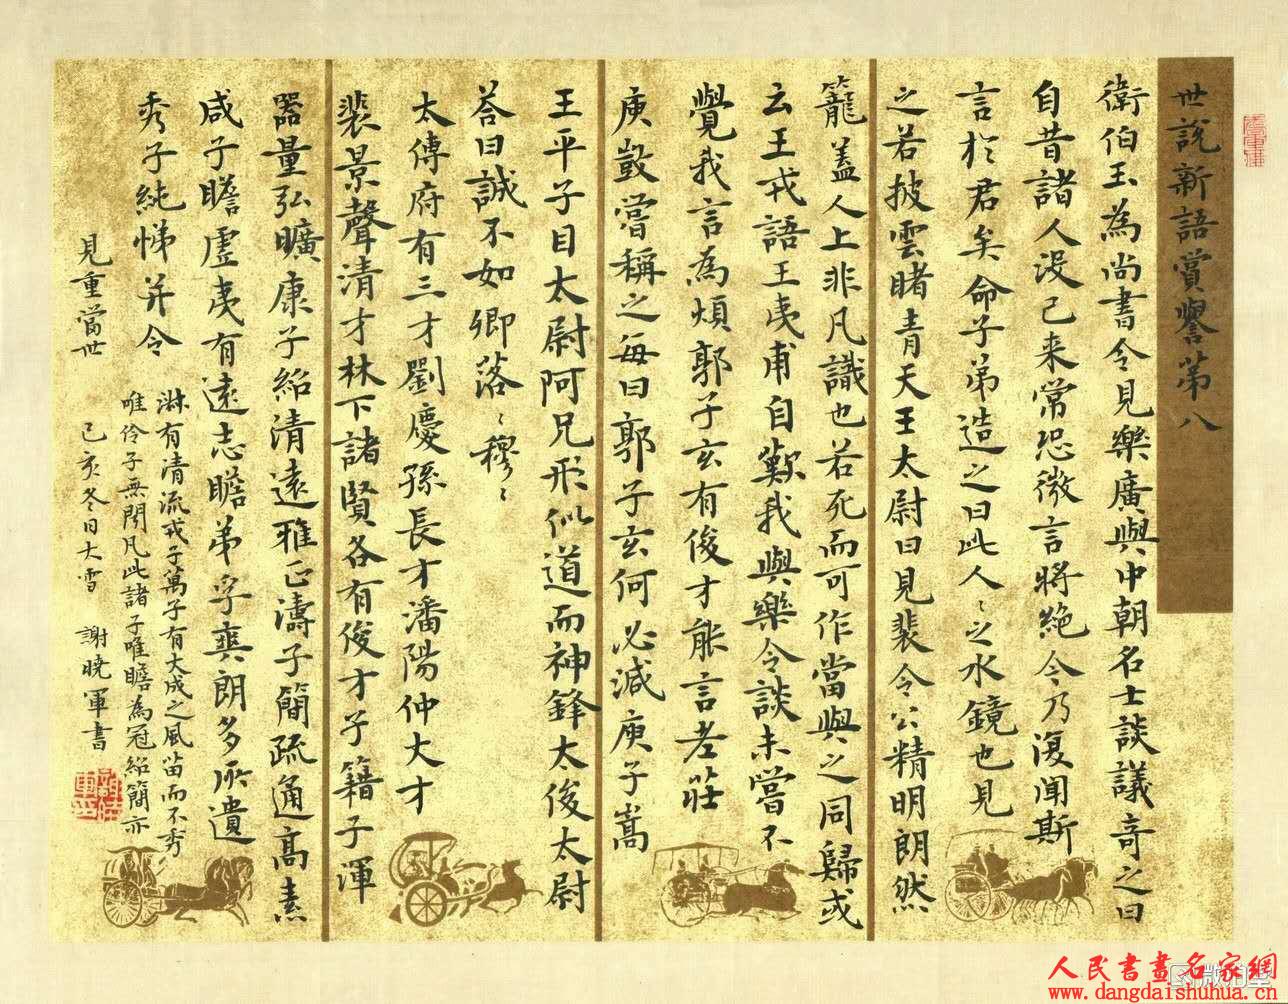 世說新語賞譽第八
衛伯玉為尚書令見樂廣與中朝名士談議奇之曰
自昔諸人没已来常恐微言將絶今乃復聞斯
言於君矣命子弟造之曰此人〻之水鏡也見
之若披雲睹青天王太尉曰見裴令公精明朗然
籠蓋人上非凡識也若死而可作當與之同歸或
云王戎語王夷甫自歎我與樂令談未嘗不
覺我言為煩郭子玄有俊才能言老莊
庾敳嘗稱之每曰郭子玄何必減庾子嵩
王平子目太尉阿兄形似道而神鋒太俊太尉
荅曰誠不如卿落〻穆〻
太傅府有三才劉慶孫長才潘陽仲大才
裴景聲清才林下諸賢各有俊才子籍子渾
器量弘曠康子紹清遠雅正濤子簡疏通高素
咸子瞻虛夷有遠志瞻弟孚爽朗多所遺
秀子純悌并令
淑有清流戎子萬子有大成之風苗而不秀
唯伶子無聞凡此諸子唯瞻為冠紹簡亦
見重當世
己亥冬日大雪 謝曉軍書
人民書畫名家網
www.dangdaishuhua.cn